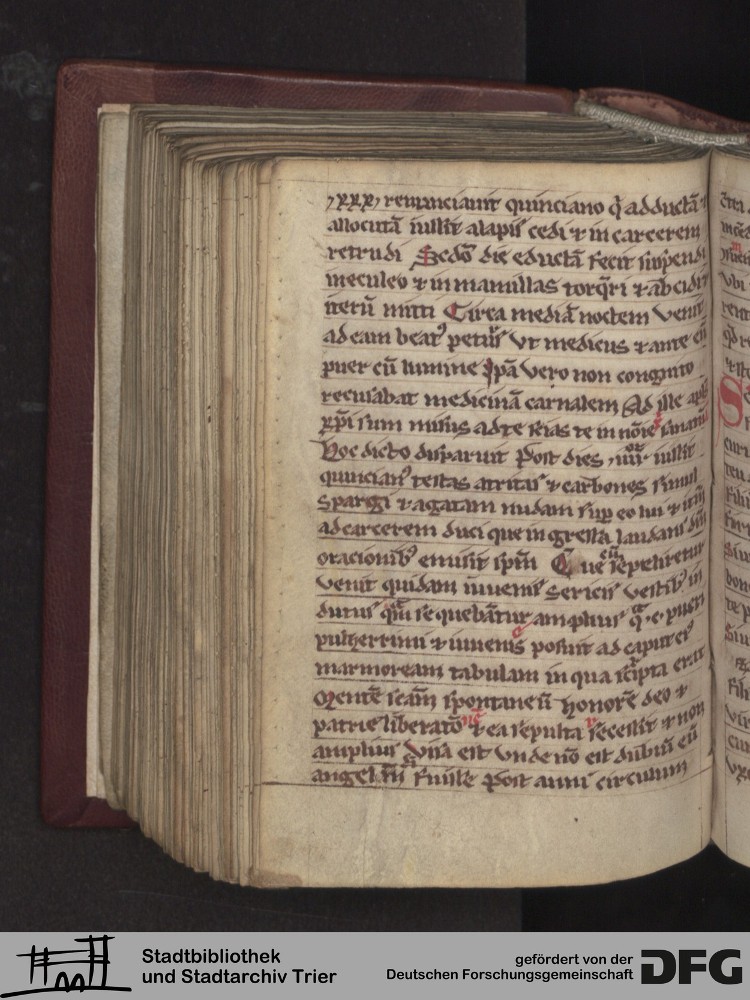 xxx, renunciauit quinciano q̇ adductā ⁊
allocutā iussit alapis cedi ⁊ in carcerem
retrudi Scd̄o die eductā fecit suspendi
ineculeo ⁊ in mamillas torq̄ri ⁊ abcidi ⁊
iterū mitti Circa mediā noctem venit
ad eam beat᾽ petrus vt medicus ⁊ ante eū
puer cū lumine Ip̄a vero non cognito
recusabat medicinā carnalem Ad ille apl̄s
xp̄i sum missus ad te scias te in nōīe sanam
hoc dicto disparuit Post dies iiii iussit
quincian᾽ testas atritas ⁊ carbones simul
spargi ⁊ agatam nudam sup̱ eo lui ⁊ itū
ad carcerem duci que in gressa laudans dn̄m
oracionib᾽ emisit sp̄m Que cū sepeliretur
venit quidam iuuenis sericis vestib᾽ in
dutus quē se quebātur amplius q̄ e pueri
pulcherrimi ⁊ iuuenis posuit ad caput ei᾽
marmoream tabulam in qua scripta erat
Mentē scam̄ spontaneū honorē deo ⁊
patrie liberatōnē ⁊ ea sepulta recessit ⁊ non
amplius visa est vnde nō est dubiū eū
angel dn̄i fuisse Post anni circulum
Stadtbibliothek
und Stadtarchiv Trier
gefördert von der
Deutschen Forschungsgemeinschaft
DFG